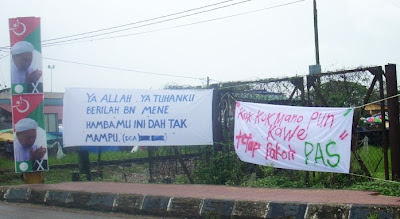 YA ALLAH. YA TUHANKU
BERILAH BN MENE
HAMBAMU INI DAH TAK
MAMPU.
"Kak Kuk Mano Pun
Kawe
tetap Pakoh PAS"